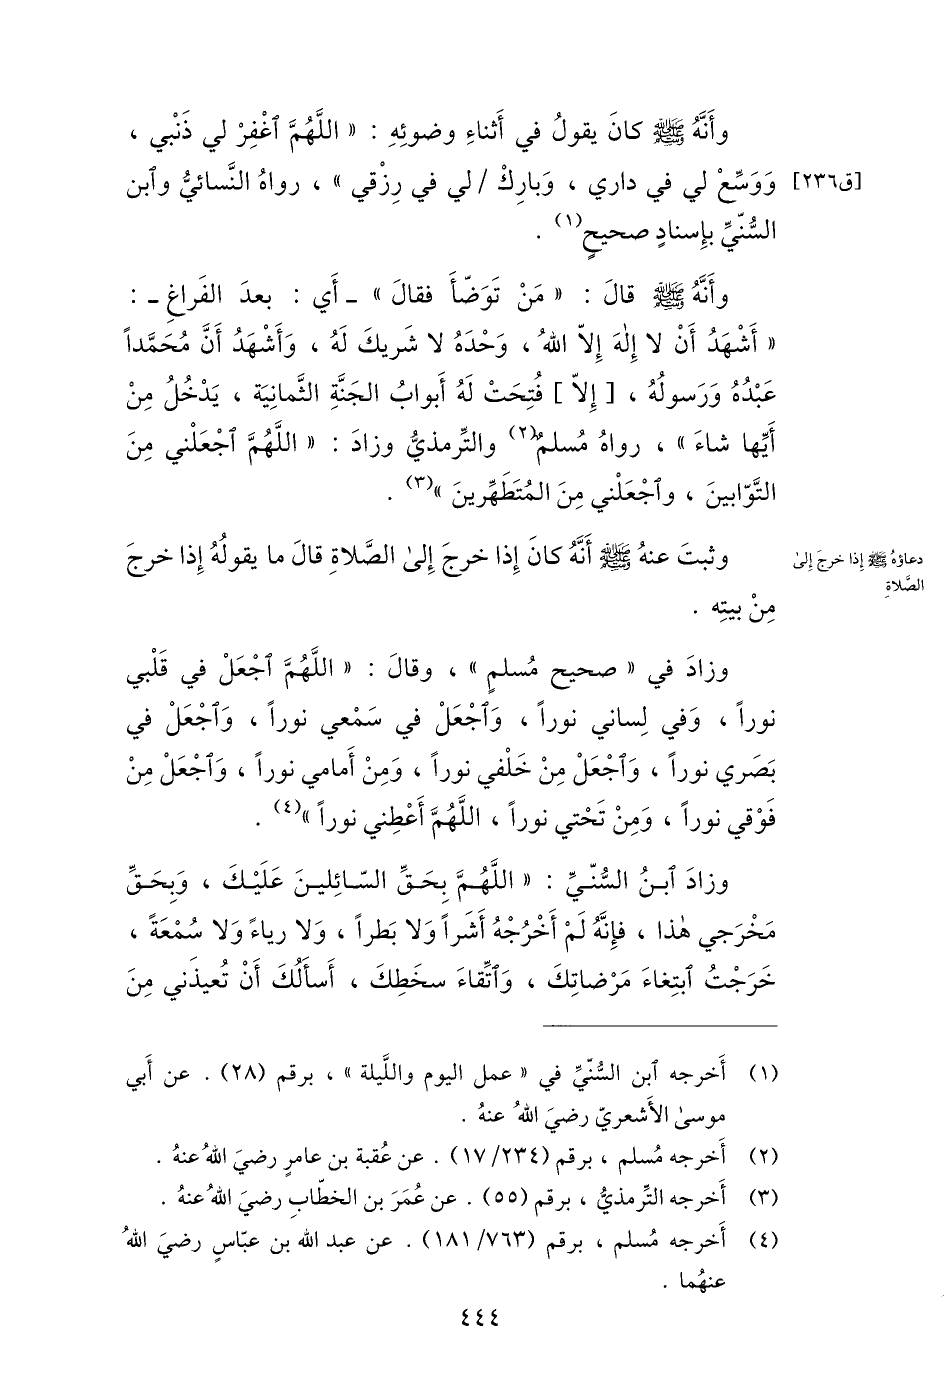 وأَنَّهُ ﷺ كانَ يقولُ في أَثناءِ وضوئِهِ : « اللَّهُمَّ ٱغْفِرْ لي ذَنْبي ،
[ق٢٣٦] وَوَسِّعْ لي في داري ، وَبارِكْ / لي في رِزْقي » ، رواهُ النَّسائيُّ وٱبن
السُّنّيِّ بإِسنادٍ صحيحٍ(١) .
وأَنَّهُ ﷺ قالَ : « مَنْ تَوَضّأَ فقالَ » ـ أَي : بعدَ الفَراغِ ـ :
« أَشْهَدُ أَنْ لا إِلٰهَ إِلاّ اللهُ ، وَحْدَهُ لا شَريكَ لَهُ ، وَأَشْهَدُ أَنَّ مُحَمَّداً
عَبْدُهُ وَرَسولُهُ ، [ إِلاّ ] فُتِحَتْ لَهُ أَبوابُ الجَنَّةِ الثَّمانِيَة ، يَدْخُلُ مِنْ
أَيِّها شاءَ » ، رواهُ مُسلمٌ(٢) والتِّرمذيُّ وزادَ : « اللَّهُمَّ ٱجْعَلْني مِنَ
التَّوّابينَ ، وٱجْعَلْني مِنَ المُتَطَهِّرينَ »(٣) .
دعاؤهُ ﷺ إِذا خرجَ إِلىٰ
الصَّلاةِ
وثبتَ عنهُ ﷺ أَنَّهُ كانَ إِذا خرجَ إِلىٰ الصَّلاةِ قالَ ما يقولُهُ إِذا خرجَ
مِنْ بيتِه .
وزادَ في « صحيح مُسلمٍ » ، وقالَ : « اللَّهُمَّ ٱجْعَلْ في قَلْبي
نوراً ، وَفي لِساني نوراً ، وَٱجْعَلْ في سَمْعي نوراً ، وَٱجْعَلْ في
بَصَري نوراً ، وَٱجْعَلْ مِنْ خَلْفي نوراً ، وَمِنْ أَمامي نوراً ، وَٱجْعَلْ مِنْ
فَوْقي نوراً ، وَمِنْ تَحْتي نوراً ، اللَّهُمَّ أَعْطِني نوراً »(٤) .
وزادَ ٱبنُ السُّنّيِّ : « اللَّهُمَّ بِحَقِّ السّائِلينَ عَلَيْكَ ، وَبِحَقِّ
مَخْرَجي هٰذا ، فإِنَّهُ لَمْ أَخْرُجْهُ أَشَراً وَلا بَطراً ، وَلا رياءً وَلا سُمْعَةً ،
خَرَجْتُ ٱبتِغاءَ مَرْضاتِكَ ، وَٱتِّقاءَ سخَطِكَ ، أَسأَلُكَ أَنْ تُعيذَني مِنَ
(١) أَخرجه ٱبن السُّنّيِّ في « عمل اليوم واللَّيلة » ، برقم (٢٨) . عن أَبي
موسىٰ الأَشعريّ رضيَ اللهُ عنهُ .
(٢) أَخرجه مُسلم ، برقم (٢٣٤/ ١٧) . عن عُقبة بن عامرٍ رضيَ اللهُ عنهُ .
(٣) أَخرجه التِّرمذيُّ ، برقم (٥٥) . عن عُمَرَ بن الخطّابِ رضيَ اللهُ عنهُ .
(٤) أَخرجه مُسلم ، برقم (٧٦٣/ ١٨١) . عن عبد الله بن عبّاسٍ رضيَ اللهُ
عنهُما .
٤٤٤